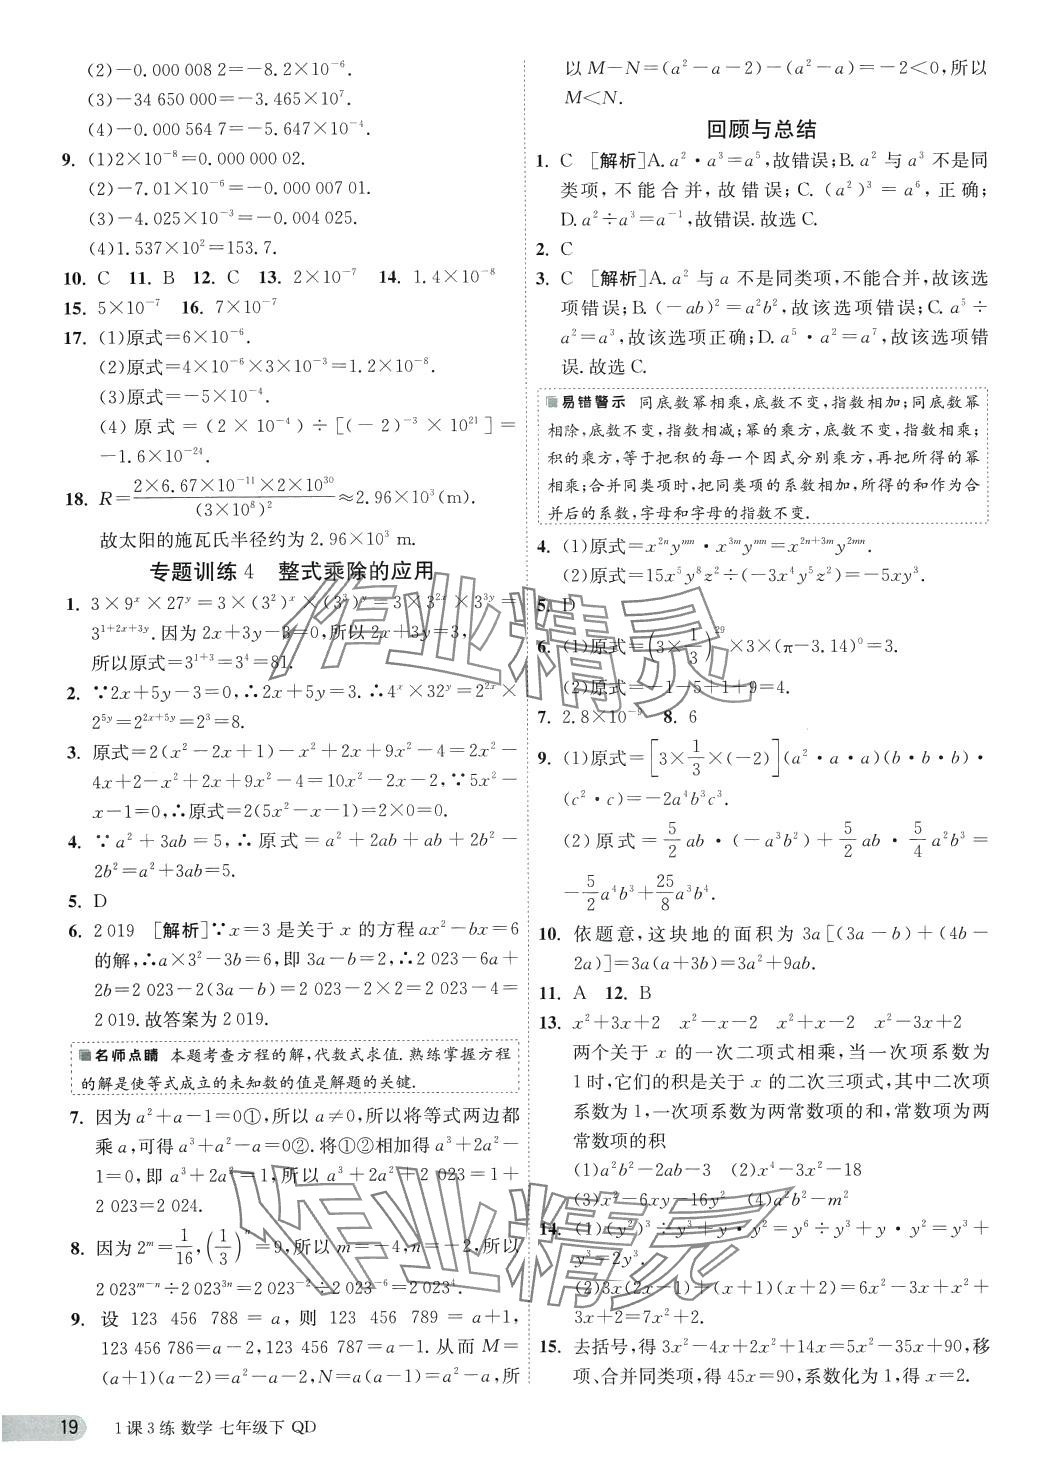 (2)-0.000 008 2=-8.2×10⁻⁶.
(3)-34 650 000=-3.465×10⁷.
(4)-0.000 564 7=-5.647×10⁻⁴.
9. (1)2×10⁻⁸=0.000 000 02.
(2)-7.01×10⁻⁶=-0.000 007 01.
(3)-4.025×10⁻³=-0.004 025.
(4)1.537×10²=153.7.
10. C 11. B 12. C 13. 2×10⁻⁷ 14. 1.4×10⁻⁸
15. 5×10⁻⁷ 16. 7×10⁻⁷
17. (1)原式=6×10⁻⁶.
(2)原式=4×10⁻⁶×3×10⁻³=1.2×10⁻⁸.
(3)原式=-5×10⁻⁴.
(4)原式=(2×10⁻⁴)÷[(-2)⁻³×10²¹]=
-1.6×10⁻²⁴.
18. R=(2×6.67×10⁻¹¹×2×10³⁰)/(3×10⁸)²≈2.96×10³(m).
故太阳的施瓦氏半径约为2.96×10³ m.
专题训练4 整式乘除的应用
1. 3×9ˣ×27ʸ=3×(3²)ˣ×(3³)ʸ=3×3²ˣ×3³ʸ=
3¹⁺²ˣ⁺³ʸ.因为2x+3y-3=0,所以2x+3y=3,
所以原式=3¹⁺³=3⁴=81.
2. ∵2x+5y-3=0,∴2x+5y=3.∴4ˣ×32ʸ=2²ˣ×
2⁵ʸ=2²ˣ⁺⁵ʸ=2³=8.
3. 原式=2(x²-2x+1)-x²+2x+9x²-4=2x²-
4x+2-x²+2x+9x²-4=10x²-2x-2,∵5x²-
x-1=0,∴原式=2(5x²-x-1)=2×0=0.
4. ∵a²+3ab=5,∴原式=a²+2ab+ab+2b²-
2b²=a²+3ab=5.
5. D
6. 2 019 [解析]∵x=3是关于x的方程ax²-bx=6
的解,∴a×3²-3b=6,即3a-b=2,∴2 023-6a+
2b=2 023-2(3a-b)=2 023-2×2=2 023-4=
2 019.故答案为2 019.
名师点睛 本题考查方程的解,代数式求值.熟练掌握方程
的解是使等式成立的未知数的值是解题的关键.
7. 因为a²+a-1=0①,所以a≠0,所以将等式两边都
乘a,可得a³+a²-a=0②.将①②相加得a³+2a²-
1=0,即a³+2a²=1,所以a³+2a²+2 023=1+
2 023=2 024.
8. 因为2ᵐ=1/16,(1/3)ⁿ=9,所以m=-4,n=-2,所以
2 023ᵐ⁻ⁿ÷2 023³ⁿ=2 023⁻²÷2 023⁻⁶=2 023⁴.
9. 设123 456 788=a,则123 456 789=a+1,
123 456 786=a-2,123 456 787=a-1.从而M=
(a+1)(a-2)=a²-a-2,N=a(a-1)=a²-a,所
以M-N=(a²-a-2)-(a²-a)=-2<0,所以
M<N.
回顾与总结
1. C [解析]A.a²·a³=a⁵,故错误;B.a²与a³不是同
类项,不能合并,故错误;C.(a²)³=a⁶,正确;
D.a²÷a³=a⁻¹,故错误.故选C.
2. C
3. C [解析]A.a²与a不是同类项,不能合并,故该选
项错误;B.(-ab)²=a²b²,故该选项错误;C.a⁵÷
a²=a³,故该选项正确;D.a⁵·a²=a⁷,故该选项错
误.故选C.
易错警示 同底数幂相乘,底数不变,指数相加;同底数幂
相除,底数不变,指数相减;幂的乘方,底数不变,指数相乘;
积的乘方,等于把积的每一个因式分别乘方,再把所得的幂
相乘;合并同类项时,把同类项的系数相加,所得的和作为合
并后的系数,字母和字母的指数不变.
4. (1)原式=x²ⁿyᵐⁿ·x³ᵐyᵐⁿ=x²ⁿ⁺³ᵐy²ᵐⁿ.
(2)原式=15x⁵y⁸z²÷(-3x⁴y⁵z²)=-5xy³.
5. D
6. (1)原式=(3×1/3)²⁹×3×(π-3.14)⁰=3.
(2)原式=-1-5+1+9=4.
7. 2.8×10⁻⁹ 8. 6
9. (1)原式=[3×1/3×(-2)](a²·a·a)(b·b·b)·
(c²·c)=-2a⁴b³c³.
(2)原式=5/2ab·(-a³b²)+5/2ab·5/4a²b³=
-5/2a⁴b³+25/8a³b⁴.
10. 依题意,这块地的面积为3a[(3a-b)+(4b-
2a)]=3a(a+3b)=3a²+9ab.
11. A 12. B
13. x²+3x+2 x²-x-2 x²+x-2 x²-3x+2
两个关于x的一次二项式相乘,当一次项系数为
1时,它们的积是关于x的二次三项式,其中二次项
系数为1,一次项系数为两常数项的和,常数项为两
常数项的积
(1)a²b²-2ab-3 (2)x⁴-3x²-18
(3)x²-6xy-16y² (4)a²b²-m²
14. (1)(y²)³÷y³+y·y²=y⁶÷y³+y·y²=y³+
y³=2y³.
(2)3x(2x-1)+(x+1)(x+2)=6x²-3x+x²+
3x+2=7x²+2.
15. 去括号,得3x²-4x+2x²+14x=5x²-35x+90,移
项、合并同类项,得45x=90,系数化为1,得x=2.
19 1课3练 数学 七年级下 QD
作业精灵
作业精灵